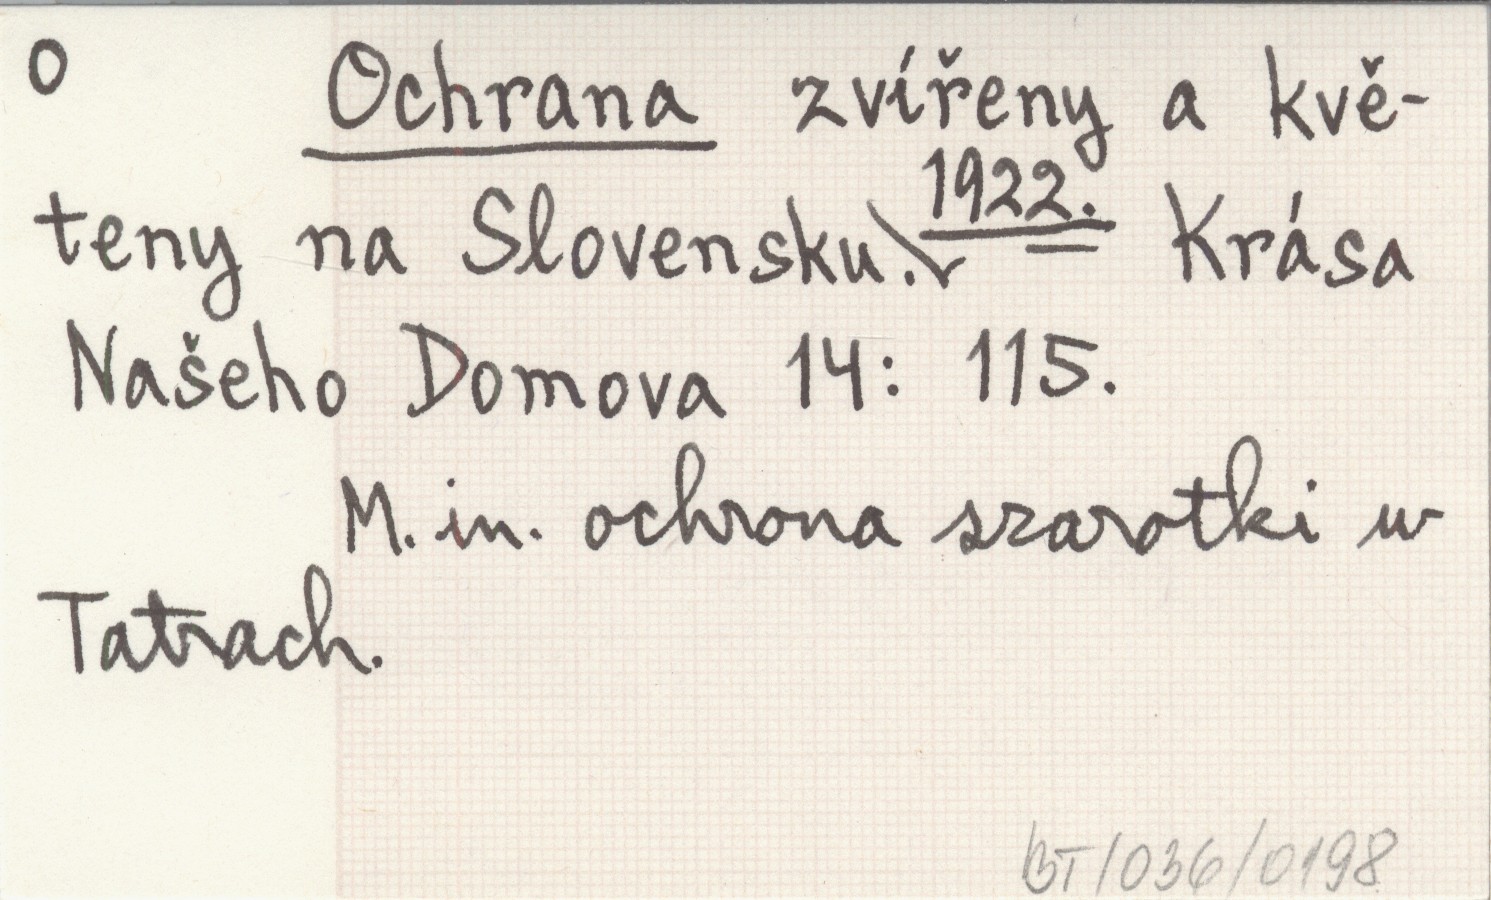 O
Ochrana zvířeny a kvě-
teny na Slovensku. 1922. Krása
Našeho Domova 14: 115.
M. in. ochrona szarotki w
Tatrach.
BT/036/0198